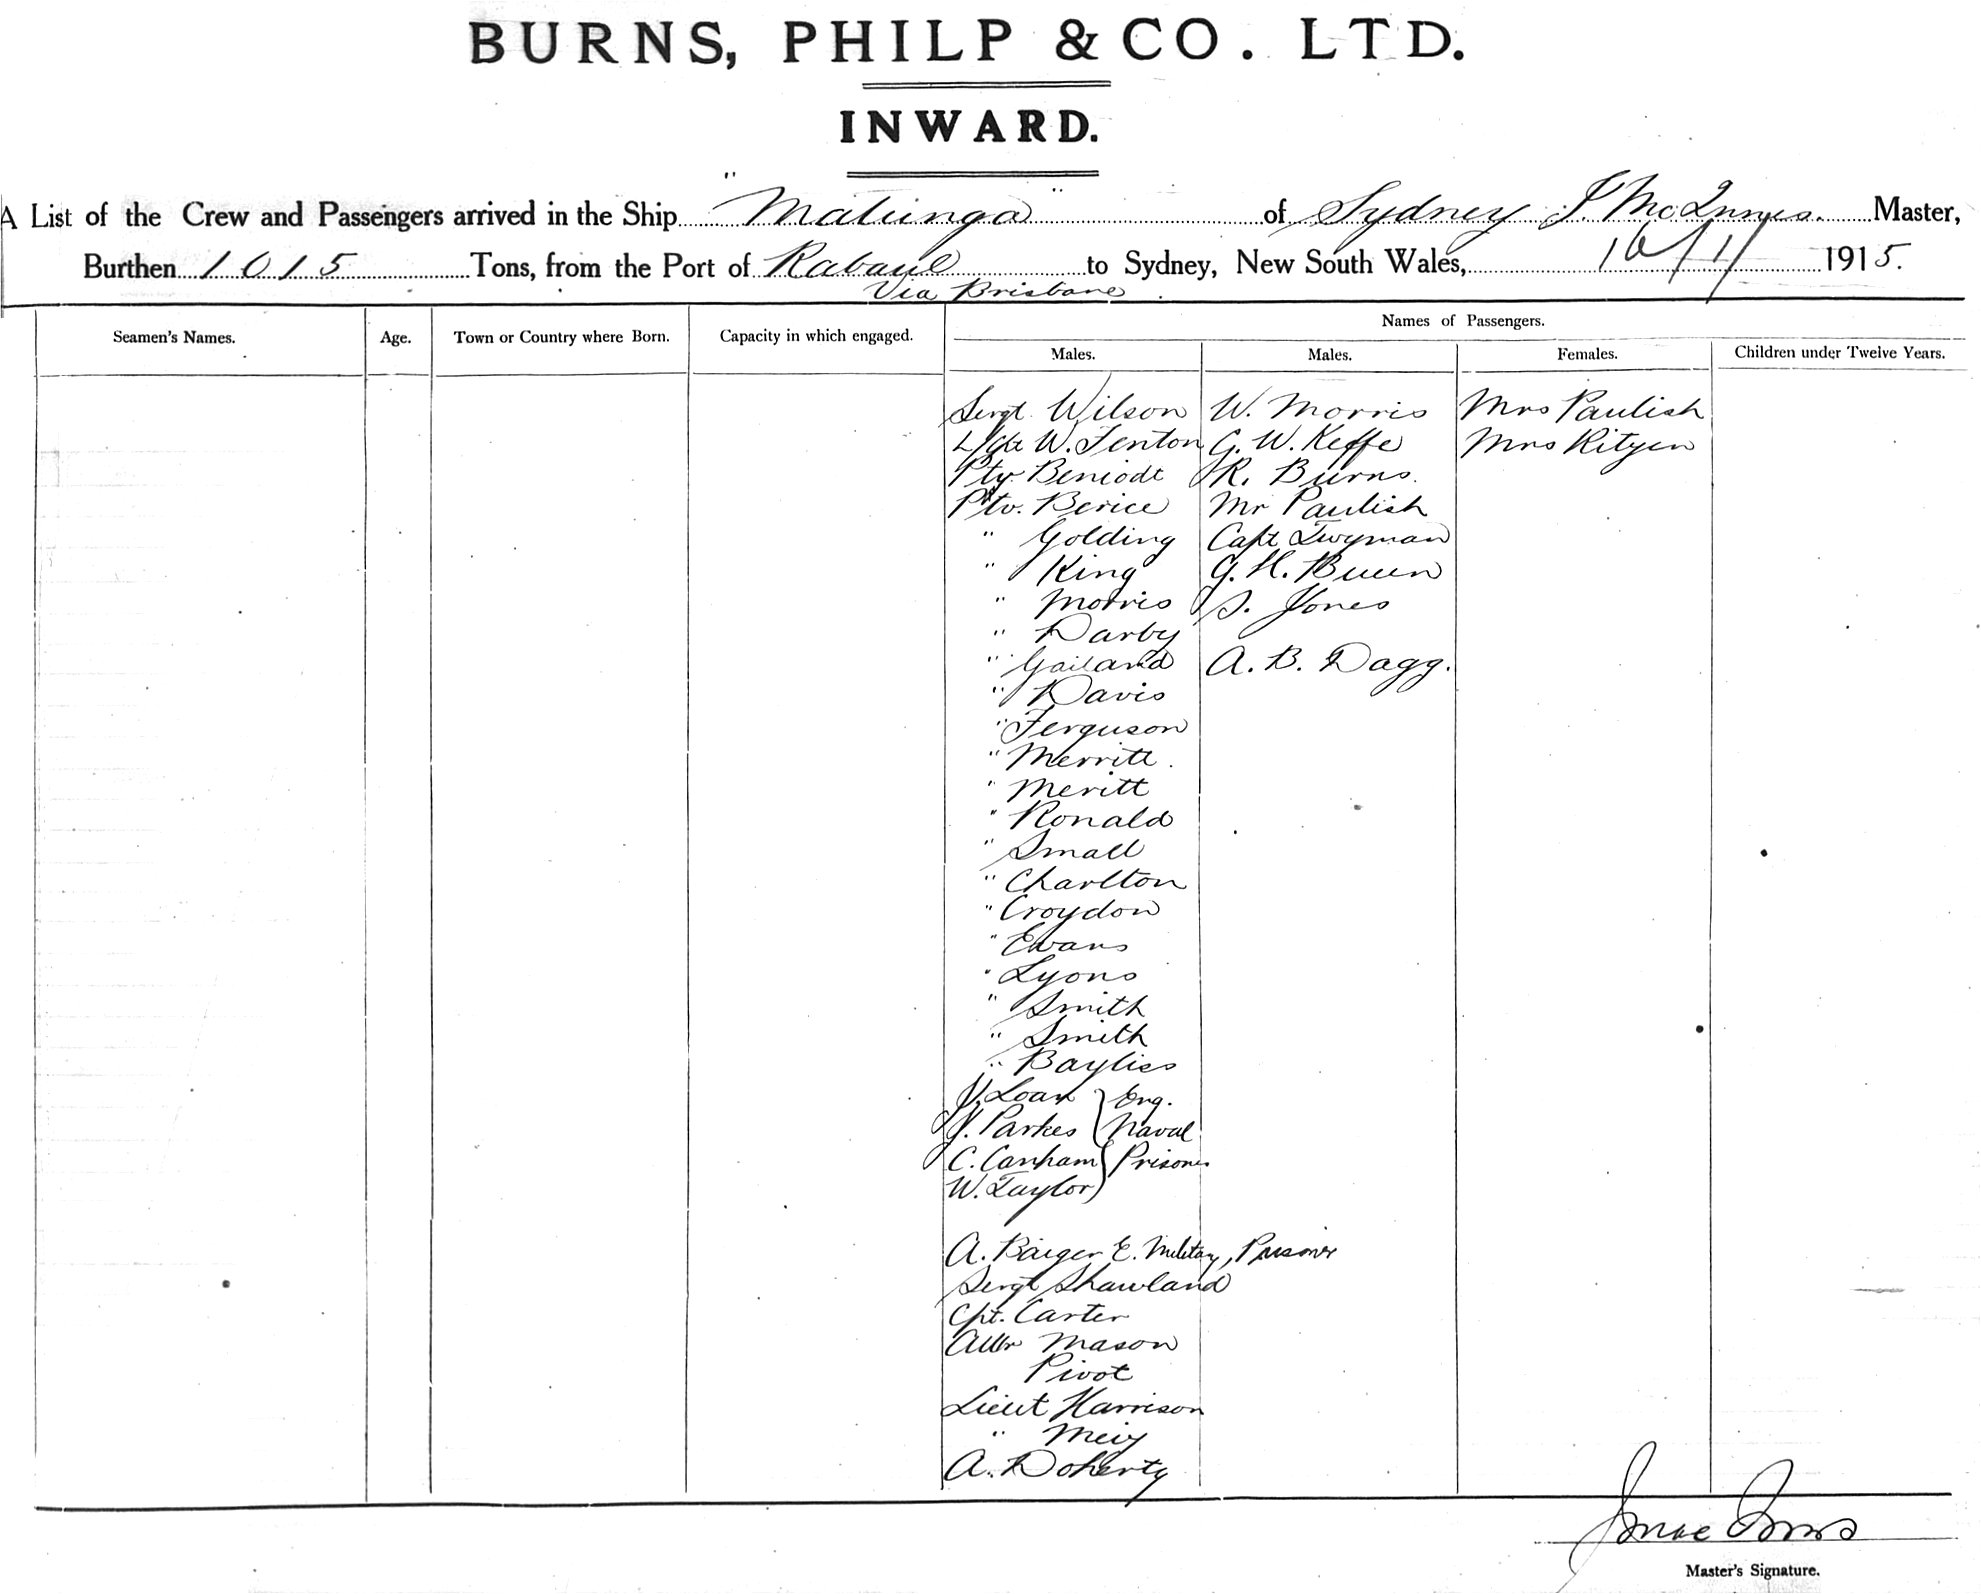 BURNS, PHILP & CO. LTD.
INWARD.
A List of the Crew and Passengers arrived in the Ship "Matunga" of Sydney J. McInnes. Master,
Burthen 1015 Tons, from the Port of Rabaul to Sydney, New South Wales, 16/1/ 1915.
Via Brisbane
Names of Passengers.
Seamen's Names. Age. Town or Country where Born. Capacity in which engaged.
Males. Males. Females. Children under Twelve Years.
Sergt. Wilson W. Morris Mrs Paulish
W. Fenton G. W. Keffe Mrs Ritzen
Beniodt R. Burns.
Ptv. Berice Mr Paulish
" Golding Capt Twyman
" King G. H.
" Morris S. Jones
" Darby
" Gailand A. B. Dagg.
" Davis
" Ferguson
" Merritt.
" Meritt
" Ronald
" Small
" Charlton
" Croydon
" Evans
" Lyons
" Smith
" Smith
" Bayliss
J. Loan Eng.
J. Parkes Naval
C. Canham Prisoner
W. Taylor
A. Baiger E. Military, Prisoner
Sergt Shawland
Cpt. Carter
Mason
Pivot
Lieut Harrison
"
A. Doherty
Master's Signature.